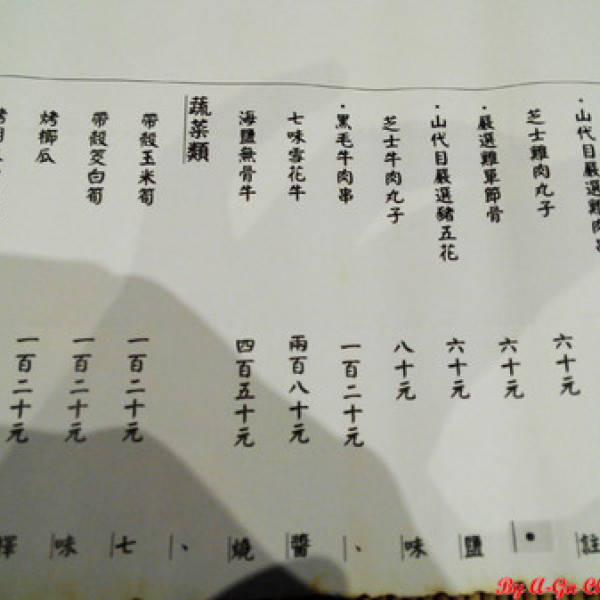 ·山代目嚴選雞肉串
芝士雞肉丸子
六十元
·嚴選雞單節骨
六十元
·山代目嚴選豬五花
六十元
芝士牛肉丸子
八十元
·黑毛牛肉串
一百二十元
七味雪花牛
兩百八十元
海鹽無骨牛
四百五十元
蔬菜類
帶殼玉米筍
一百二十元
帶殼茭白筍
一百二十元
烤櫛瓜
一百二十元
註·鹽味、醬燒、七味擇
By A-Gu